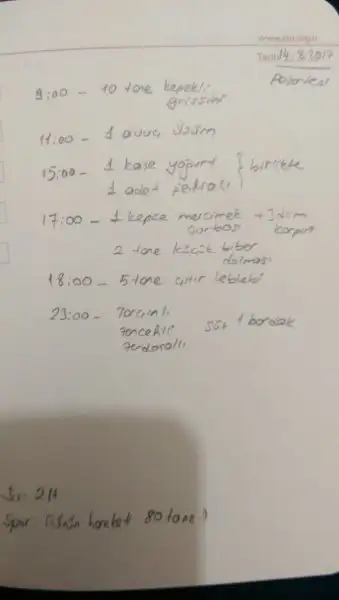 Tarih 14.8.2017
Pazartesi
9:00 - 10 tane kepekli
grissini
11:00 - 1 avuç üzüm
15:00 - 1 kase yoğurt } birlikte
1 adet şeftali
17:00 - 1 kepçe mercimek + 1 dilim
çorbası karpuz
2 tane küçük biber
dolması
18:00 - 5 tane çıtır leblebi
23:00 - Tarçınlı
zencefilli süt 1 bardak
zerdeçallı
Su: 2 lt
Spor: hareket 80 tane